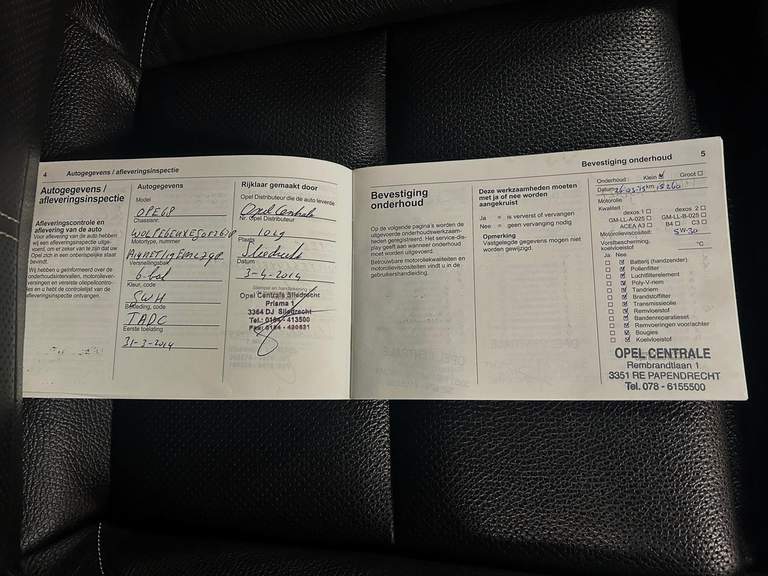 4
Autogegevens / afleveringsinspectie
Autogegevens /
afleveringsinspectie
Afleveringscontrole en
aflevering van de auto
Voor aflevering van de auto hebben
wij een afleveringsinspectie uitge-
voerd, om er zeker van te zijn dat uw
Opel zich in een onberispelijke staat
bevindt.
Wij hebben u geïnformeerd over de
onderhoudsintervallen, motorolever-
versingen en verstelde oliepeilcontro-
les en u hebt de controlelijst van de
afleveringsinspectie ontvangen.
Autogegevens
Model
Chassisnr.
Motortype, nummer
Versnellingsbak
6-bak
Kleur, code
SWH
Bekleding, code
TADC
Eerste toelating
31-3-2014
Rijklaar gemaakt door
Opel Distributeur die de auto leverde
Opel Centrale
Nr. Opel Distributeur
Plaats
Sliedrecht
Datum
3-4-2014
Stempel en handtekening
Opel Centrale Sliedrecht
Prisma 1
3364 DJ Sliedrecht
Tel.: 0184 - 413500
Fax: 0184 - 420531
Bevestiging onderhoud
5
Bevestiging
onderhoud
Op de volgende pagina's worden de
uitgevoerde onderhoudswerkzaam-
heden geregistreerd. Het service-dis-
play geeft aan wanneer onderhoud
moet worden uitgevoerd.
Betrouwbare motoroliekwaliteiten en
motorolieviscositeiten vindt u in de
gebruikershandleiding.
Deze werkzaamheden moeten
met ja of nee worden
aangekruist
Ja = is ververst of vervangen
Nee = geen vervanging nodig
Opmerking
Vastgelegde gegevens mogen niet
worden gewijzigd.
Onderhoud: Klein Groot
Datum km 18260
Motorolie
Kwaliteit
dexos 1 dexos 2
GM-LL-A-025 GM-LL-B-025
ACEA A3 B4 C3
Motorolieviscositeit: 5W-30
Vorstbescherming,
koelvloeistof °C
Ja Nee
Batterij (handzender)
Pollenfilter
Luchtfilterelement
Poly-V-riem
Tandriem
Brandstoffilter
Transmissieolie
Remvloeistof
Bandenreparatieset
Remvoeringen voor/achter
Bougies
Koelvloeistof
OPEL CENTRALE
Rembrandtlaan 1
3351 RE PAPENDRECHT
Tel. 078 - 6155500